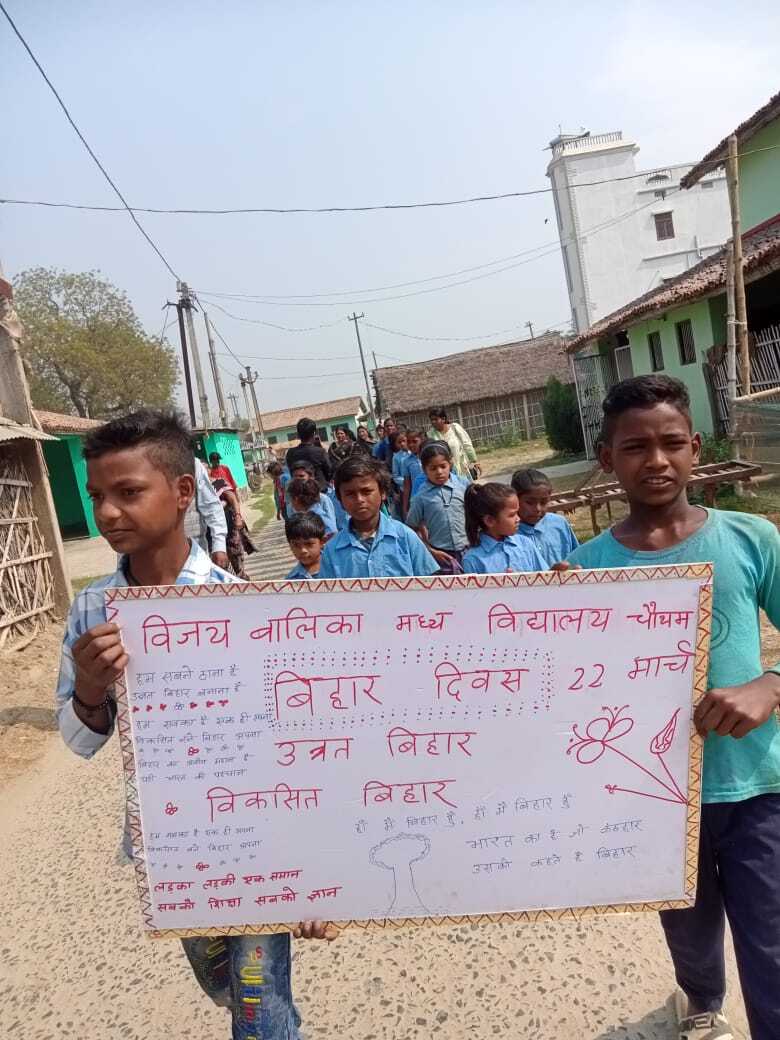 विजय बालिका मध्य विद्यालय चौथम
हम सबने ठाना है
उन्नत बिहार बनाना है
बिहार दिवस 22 मार्च
हम सबका है एक ही सपना
विकसित बने बिहार अपना
उन्नत बिहार
यही भारत की पहचान
विकसित बिहार
हाँ मैं बिहार हूँ, हाँ मैं बिहार हूँ
हम सबका है एक ही सपना
विकसित बने बिहार अपना
भारत का है जो कंठहार
उसको कहते है बिहार
लड़का लड़की एक समान
सबको शिक्षा सबको ज्ञान